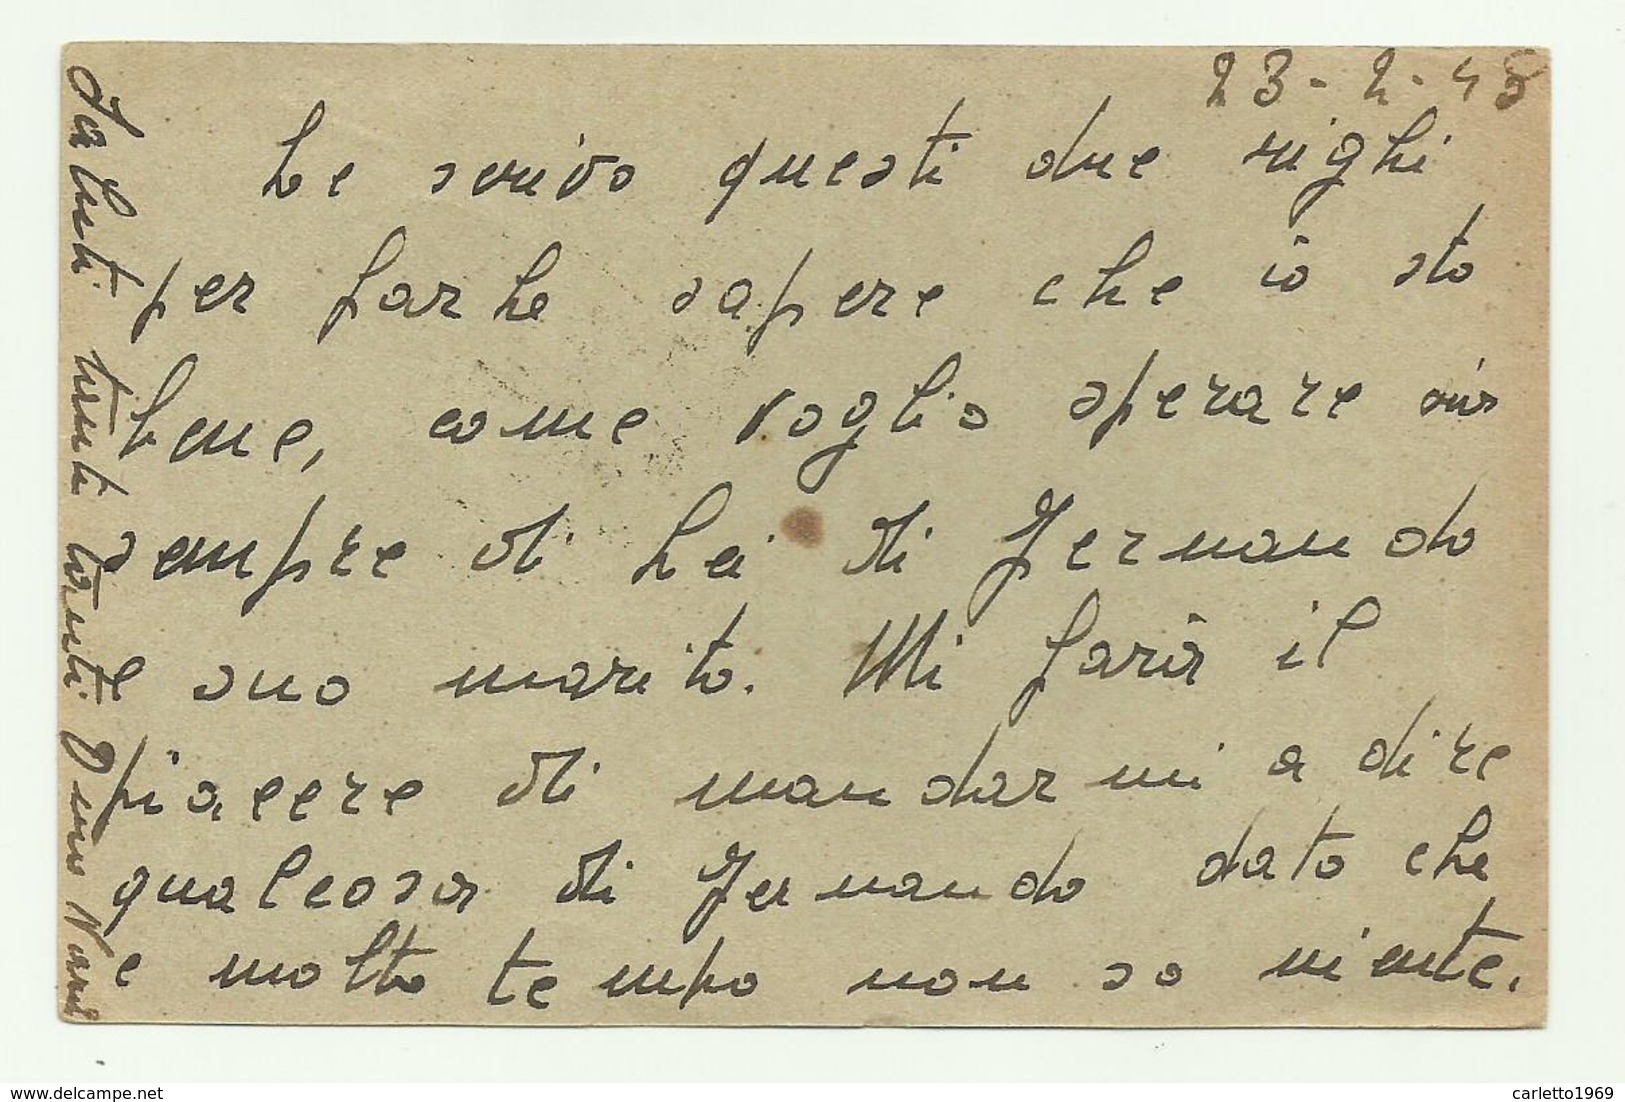 23-2-45
Le scrivo questi due righi
per farle sapere che io sto
bene, come voglio sperare sia
sempre di Lei di Fernando
e suo marito. Mi farà il
piacere di mandarmi a dire
qualcosa di Fernando dato che
e molto tempo non so niente.
Saluti tanti tanti
carletto1969